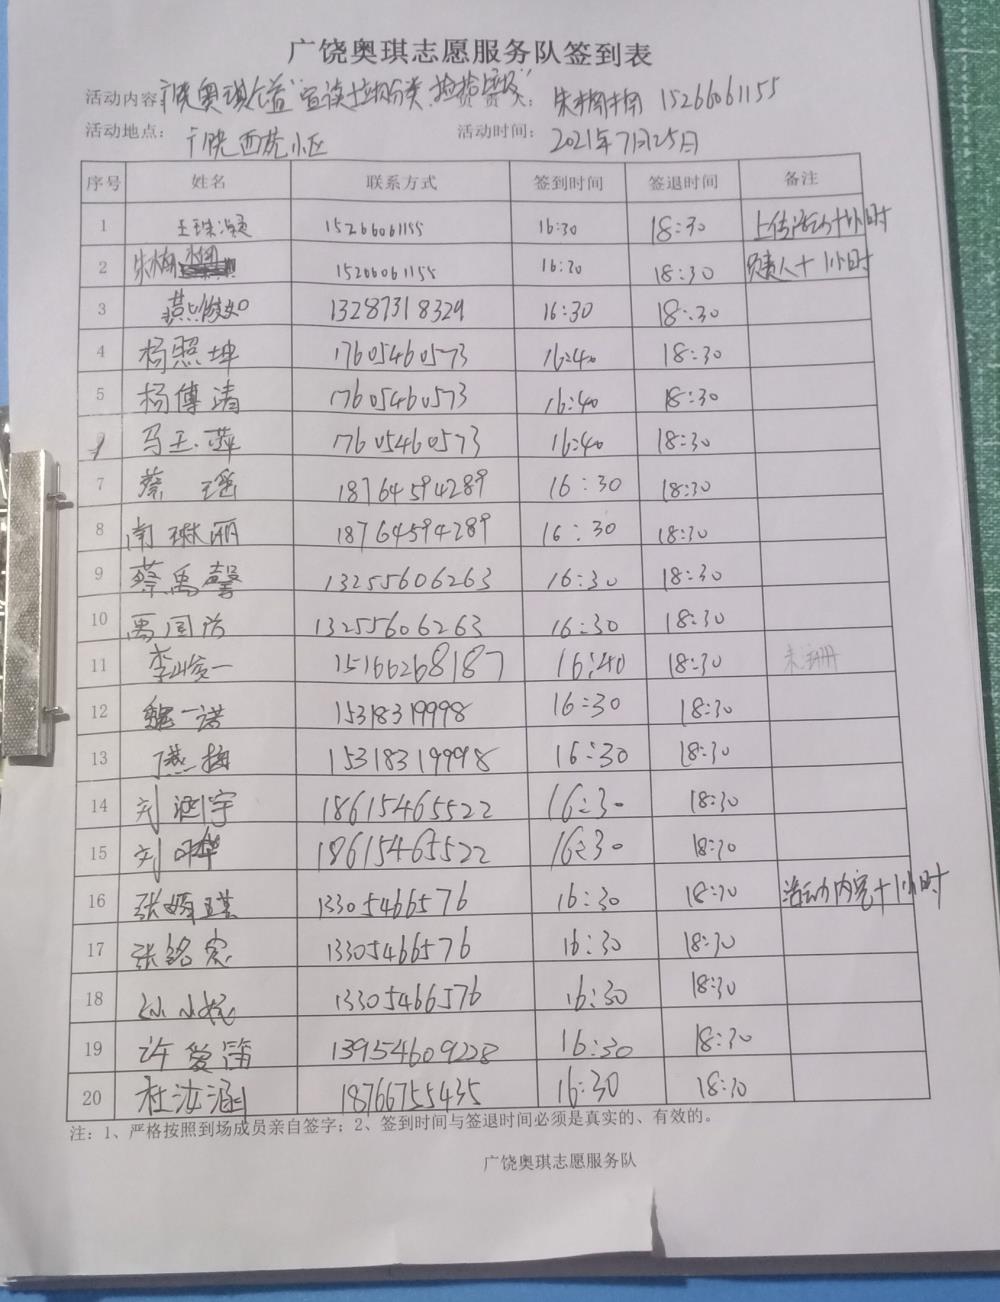 广饶奥琪志愿服务队签到表
活动内容：广饶奥琪公益"宣读垃圾分类、捡拾垃圾" 负责人： 朱楠楠 15266061155
活动地点： 广饶西苑小区 活动时间： 2021年7月25日
序号 姓名 联系方式 签到时间 签退时间 备注
1 王珠凝 15266061155 16:30 18:30 上传活动+1小时
2 朱楠楠 15266061155 16:30 18:30 负责人+1小时
3 燕 13287318329 16:30 18:30
4 杨照坤 17605460573 16:40 18:30
5 杨傅清 17605460573 16:40 18:30
马玉萍 17605460573 16:40 18:30
7 蔡瑶 18764594289 16:30 18:30
8 南琳丽 18764594289 16:30 18:30
9 蔡禹馨 13255606263 16:30 18:30
10 禹国防 13255606263 16:30 18:30
11 李峻一 15166268187 16:40 18:30
12 魏一诺 15318319998 16:30 18:30
13 燕梅 15318319998 16:30 18:30
14 刘涵宇 18615465522 16:30 18:30
15 刘叶华 18615465522 16:30 18:30
16 张婷琪 13305466576 16:30 18:30 活动内容+1小时
17 张铭宸 13305466576 16:30 18:30
18 13305466576 16:30 18:30
19 许爱笛 13954609228 16:30 18:30
20 杜汝涵 18766755435 16:30 18:30
注：1、严格按照到场成员亲自签字；2、签到时间与签退时间必须是真实的、有效的。
广饶奥琪志愿服务队